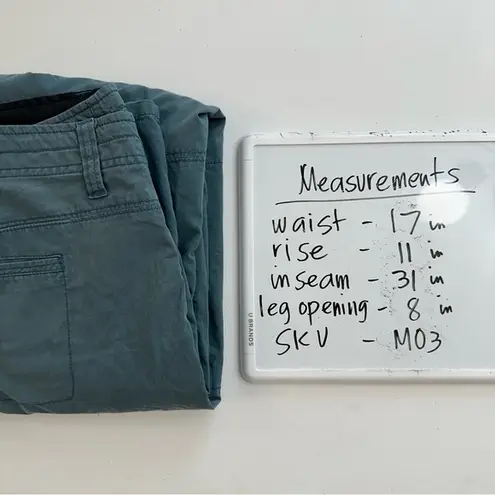 Measurements
waist - 17 in
rise - 11 in
inseam - 31 in
leg opening - 8 in
SKU - M03
U BRANDS